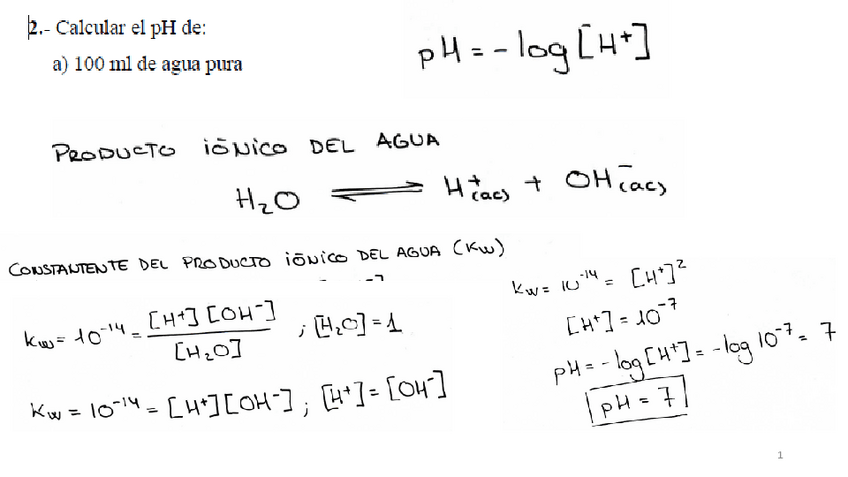 2.- Calcular el pH de:
a) 100 ml de agua pura
pH = - log [H⁺]
PRODUCTO IÓNICO DEL AGUA
H₂O ⇌ H⁺(ac) + OH⁻(ac)
CONSTANTENTE DEL PRODUCTO IÓNICO DEL AGUA (Kw)
Kw = 10⁻¹⁴ = [H⁺][OH⁻] / [H₂O] ; [H₂O] = 1
Kw = 10⁻¹⁴ = [H⁺][OH⁻] ; [H⁺] = [OH⁻]
Kw = 10⁻¹⁴ = [H⁺]²
[H⁺] = 10⁻⁷
pH = - log [H⁺] = - log 10⁻⁷ = 7
pH = 7
1